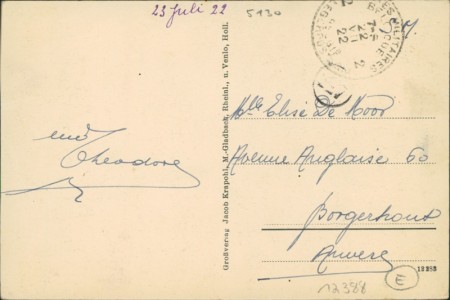 23 Juli 22
5130
S.M.
POSTES MILITAIRES
BELGIQUE
22
2
Mlle Elise De Moor
Avenue Anglaise 60
Borgerhout
Anvers
Theodore
Großverlag Jacob Krapohl, M.-Gladbach, Rheinl., u. Venlo, Holl.
12388
E